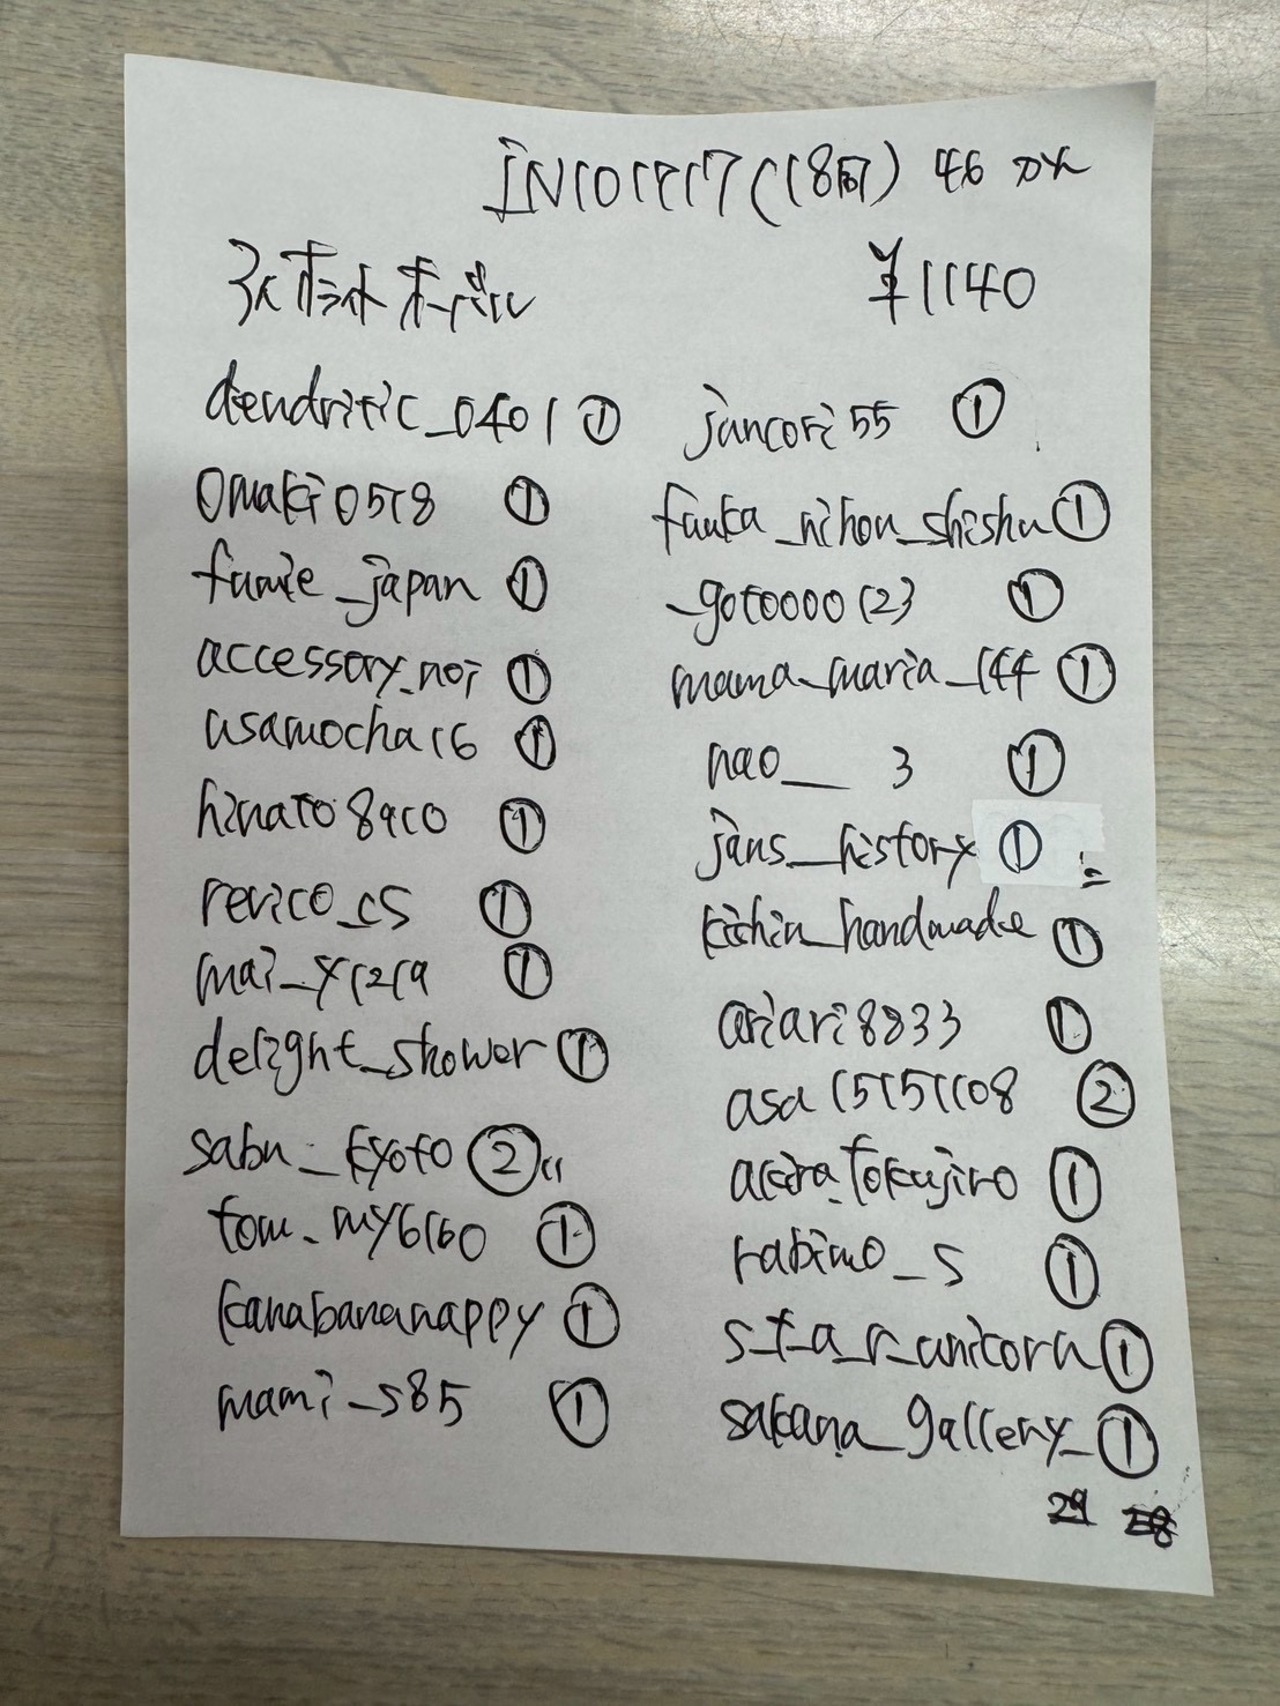 IN101417(18図) 46 カメ
¥1140
dendritic_0401 ①
omaki0518 ①
fumie_japan ①
accessory_noi ①
usamocha16 ①
hinato8910 ①
revico_cs ①
mai_y1219 ①
delight_shower ①
sabu_kyoto ②
tom_my6160 ①
kanabananappy ①
mami_s85 ①
jancori55 ①
fuuka_nihon_shishu ①
_goto000123 ①
mama_maria_144 ①
nao__ 3 ①
jans__history ①
kichin_handmade ①
ariari8833 ①
asa15151108 ②
akira_tokujiro ①
rabimo_s ①
s_t_a_r_unicorn ①
sakana_gallery_ ①
29